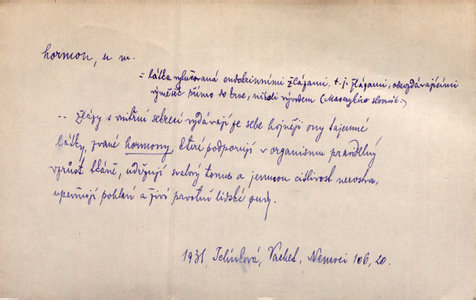 hormon, u m.
= látka vylučovaná endokrinními žlázami, t. j. žlázami, odevzdávajícími
výměšek přímo do krve, nikoli vývodem (Masarykův slovník)
.. žlázy s vnitřní sekrecí vydávají ze sebe hojněji ony tajemné
látky, zvané hormony, které podporují v organismu pravidelný
vzrůst tkáně, udržují svalový tonus a jemnou citlivost nervstva,
upevňují pohlaví a živí prvotní lidské pudy.
1931, Tchúdová, Vachek, Nemoci 106, 20.